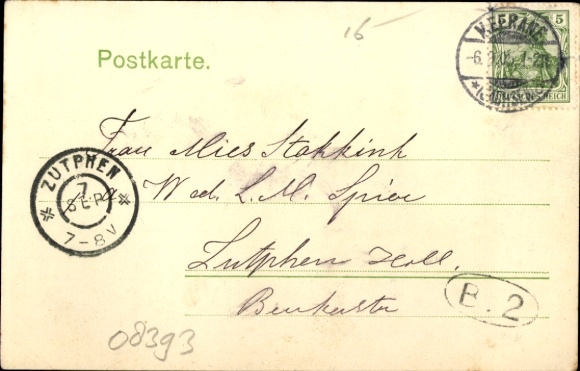 16
Postkarte.
MEERANE
-6. 9. 05. 1-2
5
DEUTSCHES REICH
Frau Mies Stokkink
Wed. L. M. Spier
Zutphen Holl.
Beukerstr
ZUTPHEN
7
SEP
7-8V
B. 2
08393